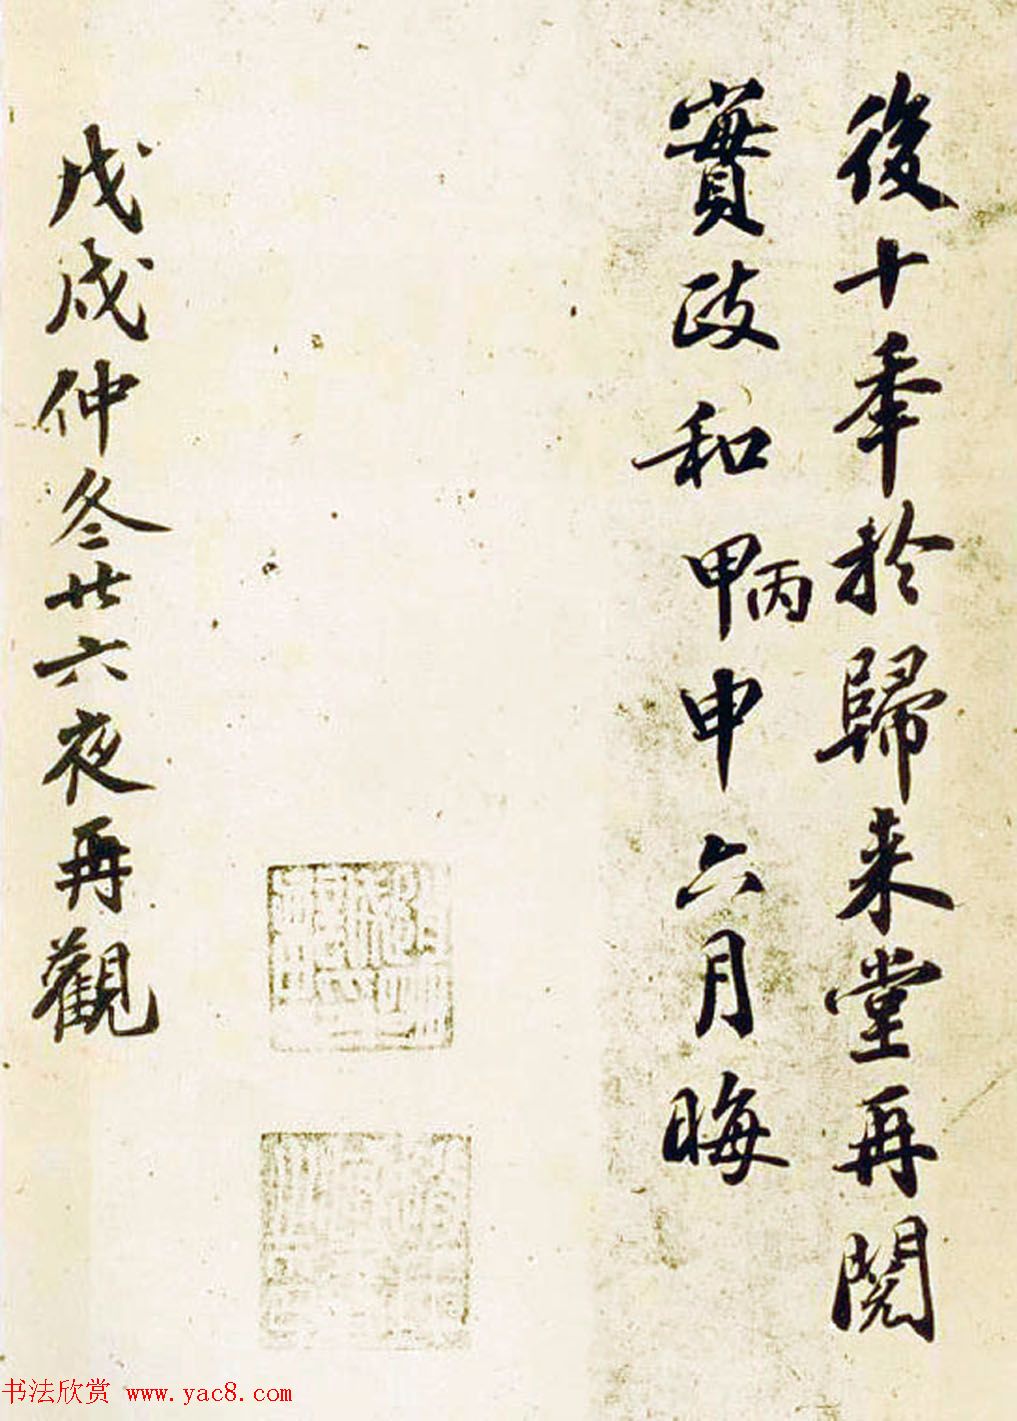 後十年於歸来堂再閱
實政和甲丙申六月晦
戊戌仲冬廿六夜再觀
书法欣赏 www.yac8.com